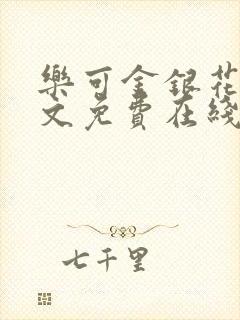 樂可金銀花
文免費在綫
七千里